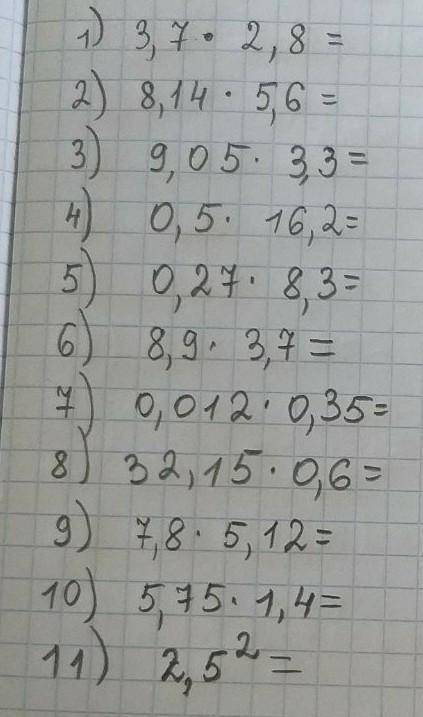 1) 3,7 · 2,8 =
2) 8,14 · 5,6 =
3) 9,05 · 3,3 =
4) 0,5 · 16,2 =
5) 0,27 · 8,3 =
6) 8,9 · 3,7 =
7) 0,012 · 0,35 =
8) 32,15 · 0,6 =
9) 7,8 · 5,12 =
10) 5,75 · 1,4 =
11) 2,5² =